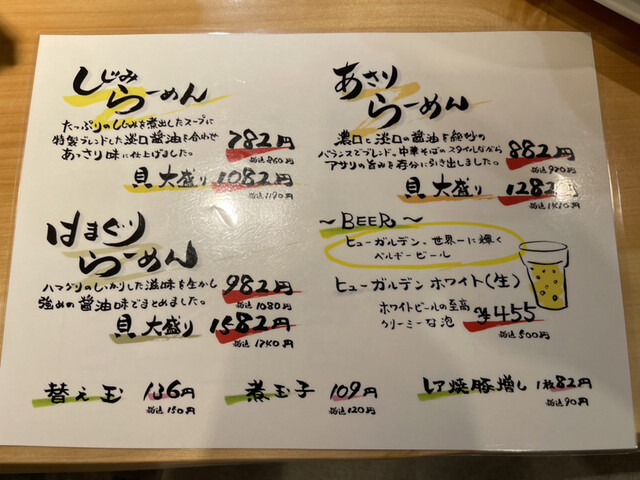 しじみ
らーめん
たっぷりのしじみを煮出したスープに
特製ブレンドした淡口醤油を合わせ
あっさり味に仕上げました。
782円
税込860円
貝大盛り 1082円
税込1190円
はまぐり
らーめん
ハマグリのしっかりした滋味を生かし
強めの醤油味でまとめました。
982円
税込1080円
貝大盛り 1582円
税込1740円
あさり
らーめん
濃口と淡口の醤油を絶妙の
バランスでブレンド。中華そばのスタイルながら
アサリの旨みを存分に引き出しました。
882円
税込970円
貝大盛り 1282円
税込1410円
～BEER～
ヒューガルデン、世界一に輝く
ベルギービール
ヒューガルデンホワイト(生)
ホワイトビールの至高
クリーミーな泡
¥455
税込500円
替え玉 136円
税込150円
煮玉子 109円
税込120円
レア焼豚増し 1枚82円
税込90円